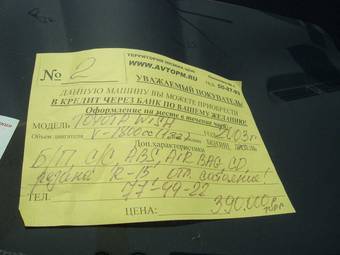 ТЕРРИТОРИЯ НИЗКИХ ЦЕН
WWW.AVTOPM.RU
50-07-93
№ 2
УВАЖАЕМЫЙ ПОКУПАТЕЛЬ!
ДАННУЮ МАШИНУ ВЫ МОЖЕТЕ ПРИОБРЕСТИ
В КРЕДИТ ЧЕРЕЗ БАНК ПО ВАШЕМУ ЖЕЛАНИЮ.
Оформление на месте в течение часа
МОДЕЛЬ TOYOTA WISH
Объем двигателя V-1800cc (132) 2003г
Доп.характеристики
Б/П, С/С, ABS, AIR BAG, CD,
резина R-15, отл. состояние!
ТЕЛ. 77-99-22
ЦЕНА: 390,000р
торг